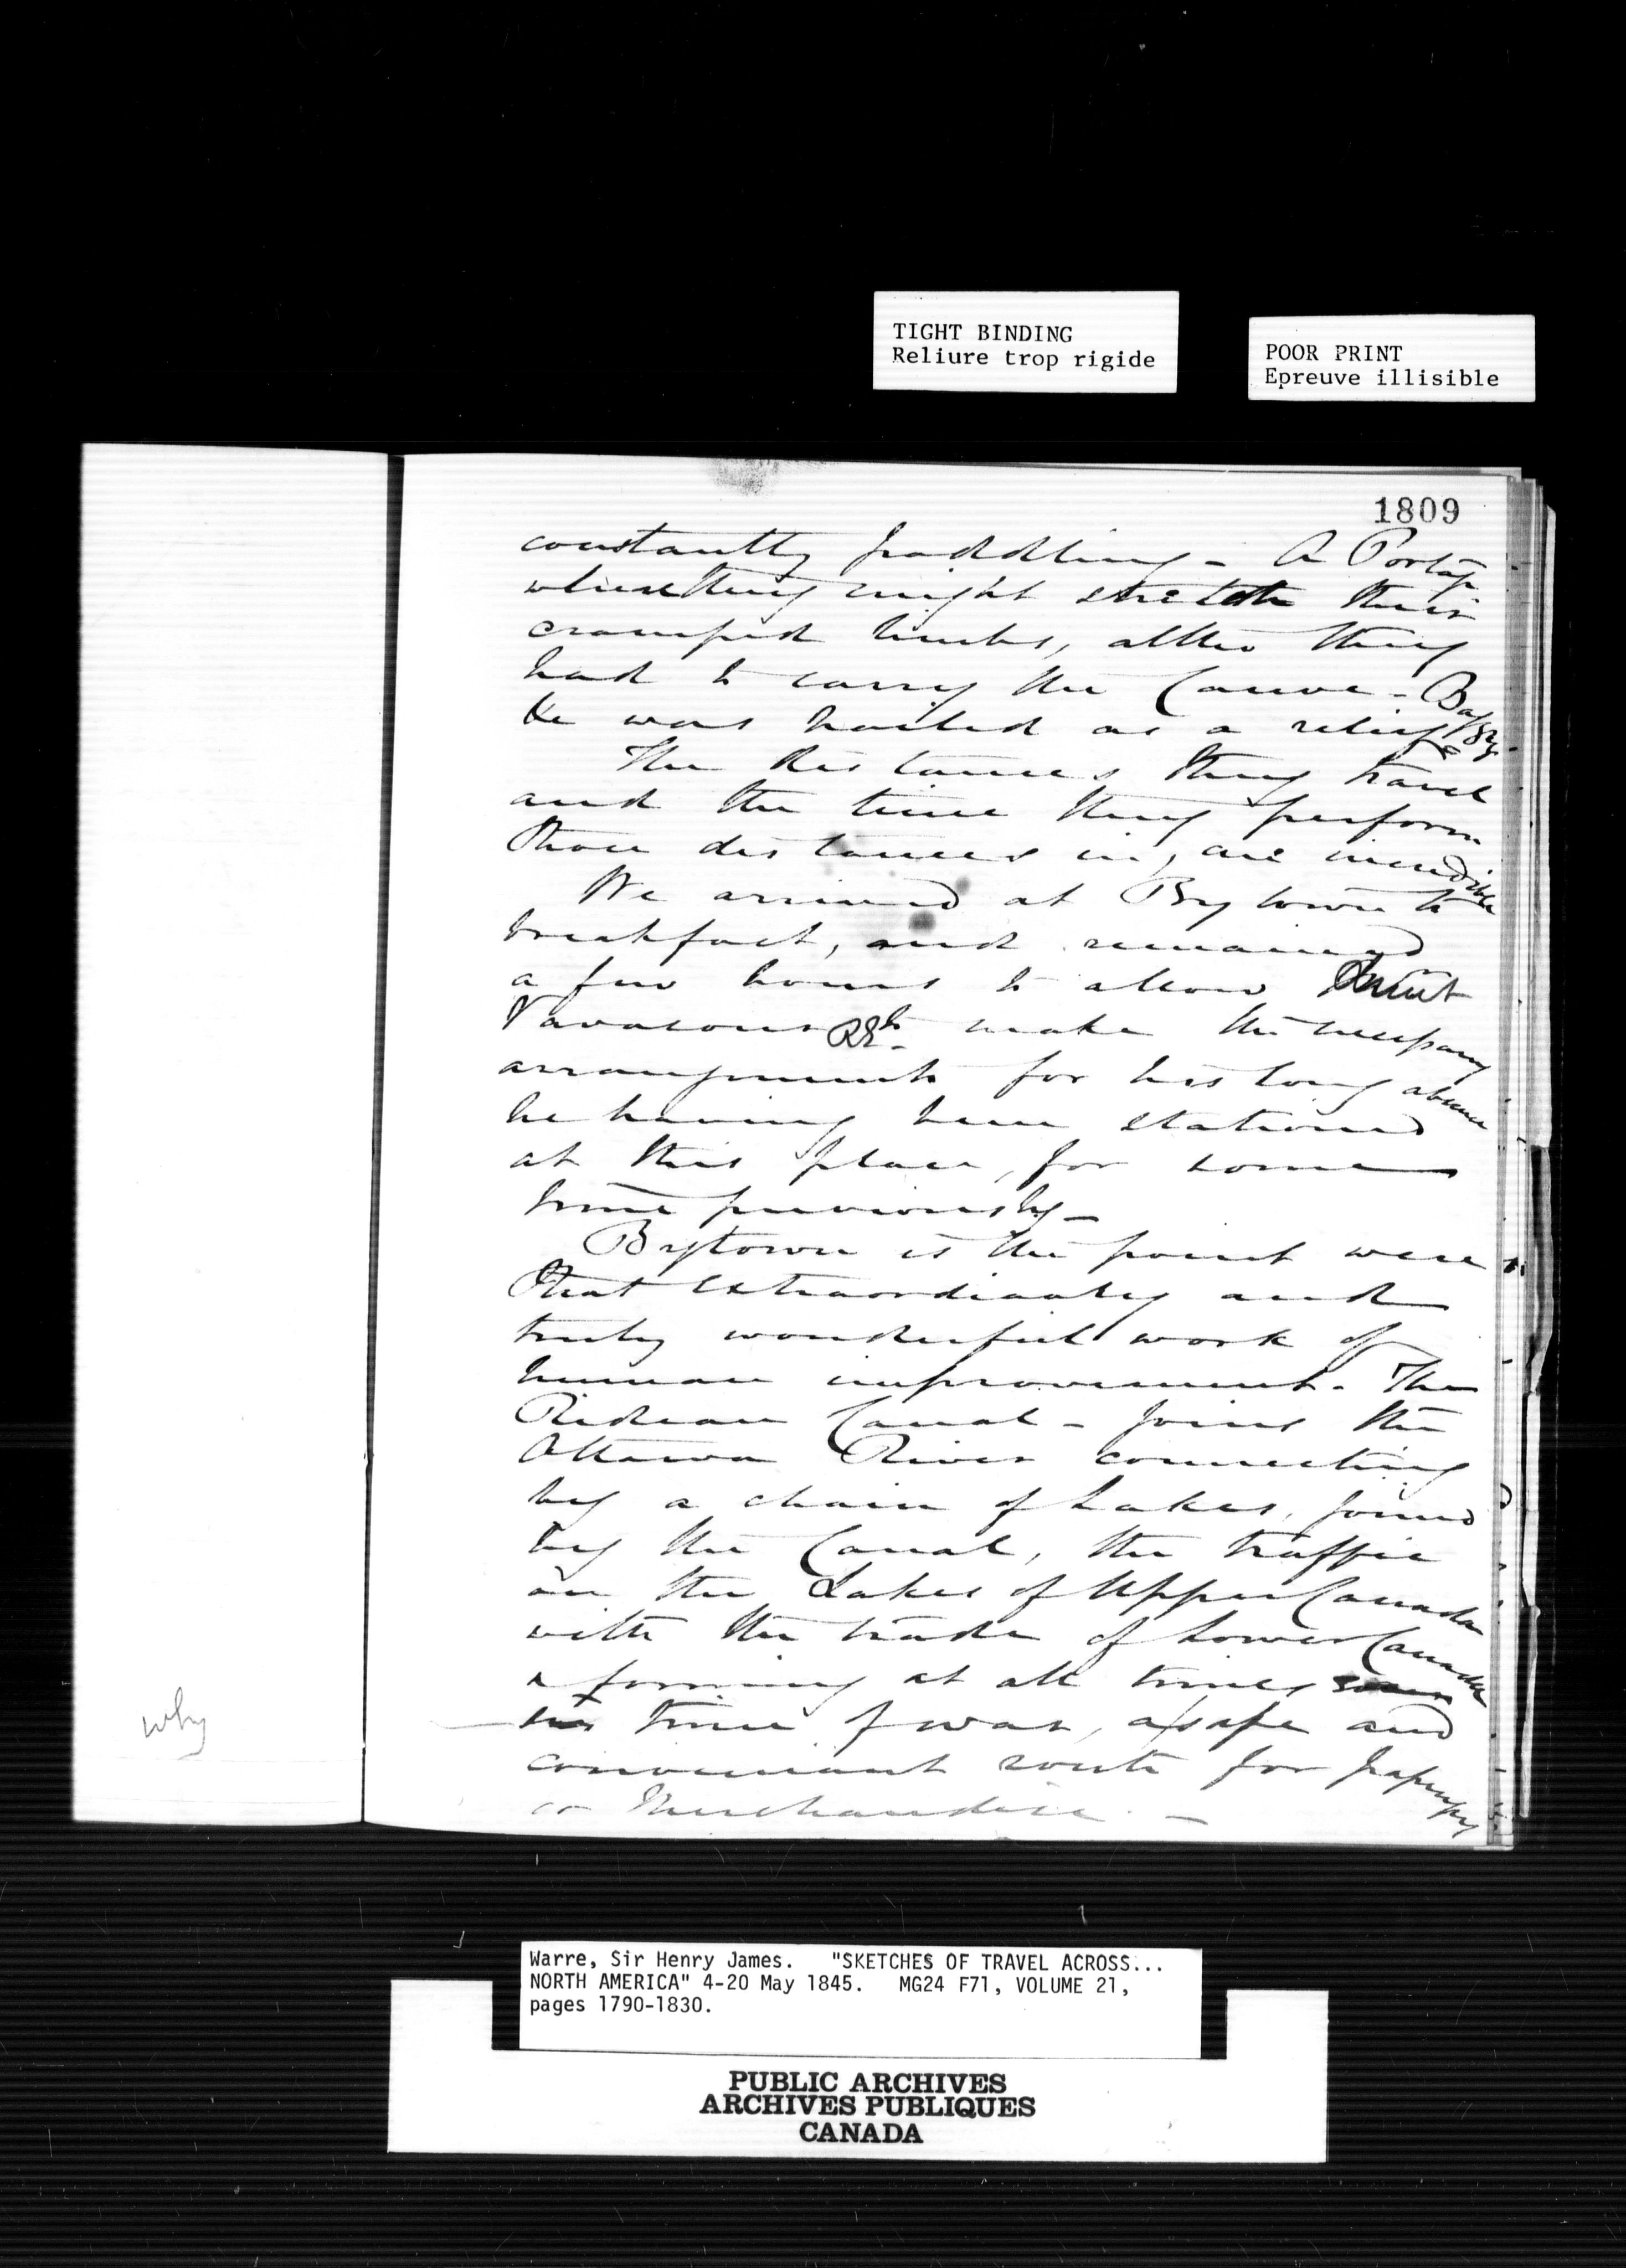 TIGHT BINDING
Reliure trop rigide
POOR PRINT
Epreuve illisible
1809
constantly paddling - A Portage
where they might stretch their
cramped limbs, altho they
had to carry the Canoe - Baggage
&c was hailed as a relief
The distances they travel
and the time they perform
those distances in, are incredible
We arrived at Bytown to
breakfast, and remained
a few hours to allow Lieut
Vavasour RE. to make the necessary
arrangements for his long absence
he having been stationed
at this place, for some
time previously -
Bytown is the point were
that extraordinary and
truly wonderful work of
human improvement. The
Rideau Canal - joins the
Ottawa River connecting
by a chain of Lakes, joined
by the Canal, the traffic
on the Lakes of Upper Canada
with the trade of Lower Canada
& forming at all times
time of war, a safe and
convenient route for passengers
or Merchandise. -
why
Warre, Sir Henry James. "SKETCHES OF TRAVEL ACROSS...
NORTH AMERICA" 4-20 May 1845. MG24 F71, VOLUME 21,
pages 1790-1830.
PUBLIC ARCHIVES
ARCHIVES PUBLIQUES
CANADA